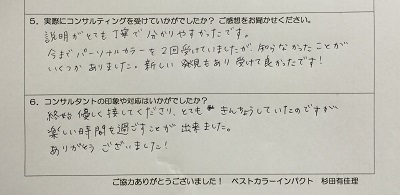 5. 実際にコンサルティングを受けていかがでしたか？ ご感想をお聞かせください。
説明がとても丁寧で分かりやすかったです。
今までパーソナルカラーを2回受けていましたが、知らなかったことが
いくつかありました。新しい発見もあり受けて良かったです！
6. コンサルタントの印象や対応はいかがでしたか？
終始優しく接してくださり、とてもきんちょうしていたのですが
楽しい時間を過ごすことが出来ました。
ありがとうございました！
ご協力ありがとうございました！ ベストカラーインパクト 杉田有佳理